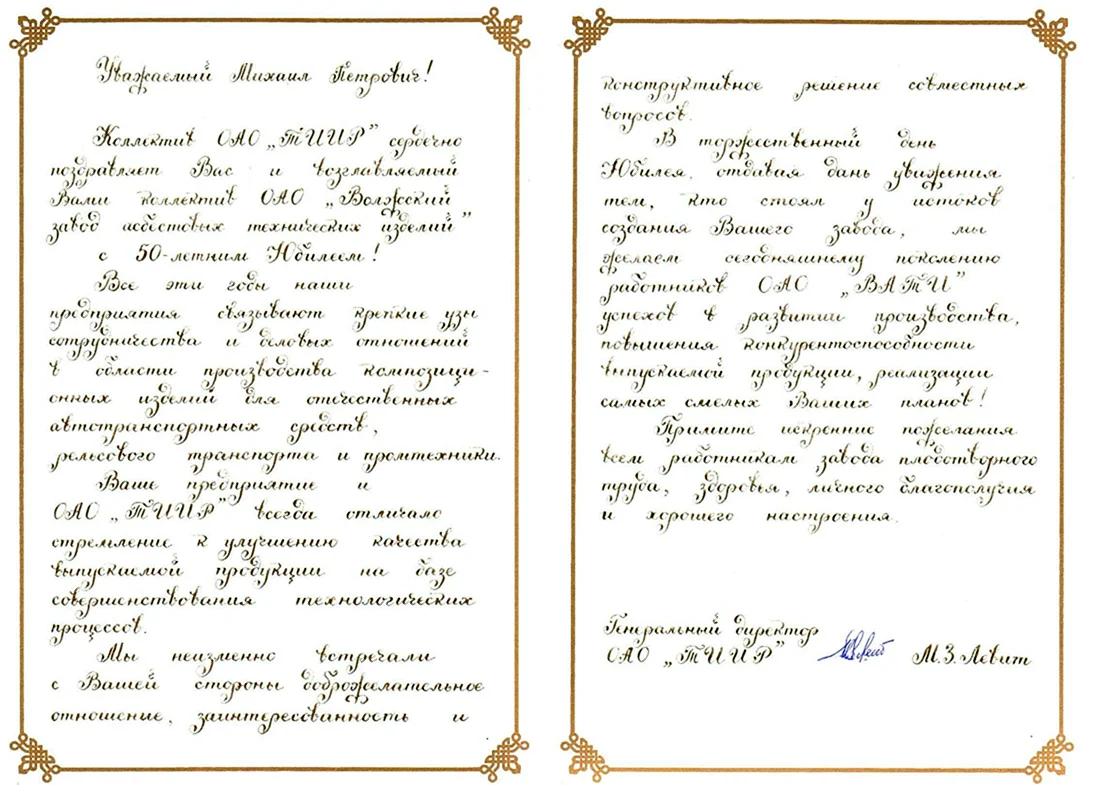 Уважаемый Михаил Петрович!
Коллектив ОАО „ТИИР” сердечно
поздравляет Вас и возглавляемый
Вами коллектив ОАО „Волжский
завод асбестовых технических изделий”
с 50-летним Юбилеем!
Все эти годы наши
предприятия связывают крепкие узы
сотрудничества и деловых отношений
в области производства композици-
онных изделий для отечественных
автотранспортных средств,
рельсового транспорта и промтехники.
Ваше предприятие и
ОАО „ТИИР” всегда отличало
стремление к улучшению качества
выпускаемой продукции на базе
совершенствования технологических
процессов.
Мы неизменно встречали
с Вашей стороны доброжелательное
отношение, заинтересованность и
конструктивное решение совместных
вопросов.
В торжественный день
Юбилея, отдавая дань уважения
тем, кто стоял у истоков
создания Вашего завода, мы
желаем сегодняшнему поколению
работников ОАО „ВАТИ”
успехов в развитии производства,
повышения конкурентоспособности
выпускаемой продукции, реализации
самых смелых Ваших планов!
Примите искренние пожелания
всем работникам завода плодотворного
труда, здоровья, личного благополучия
и хорошего настроения.
Генеральный директор
ОАО „ТИИР” М.З. Левит